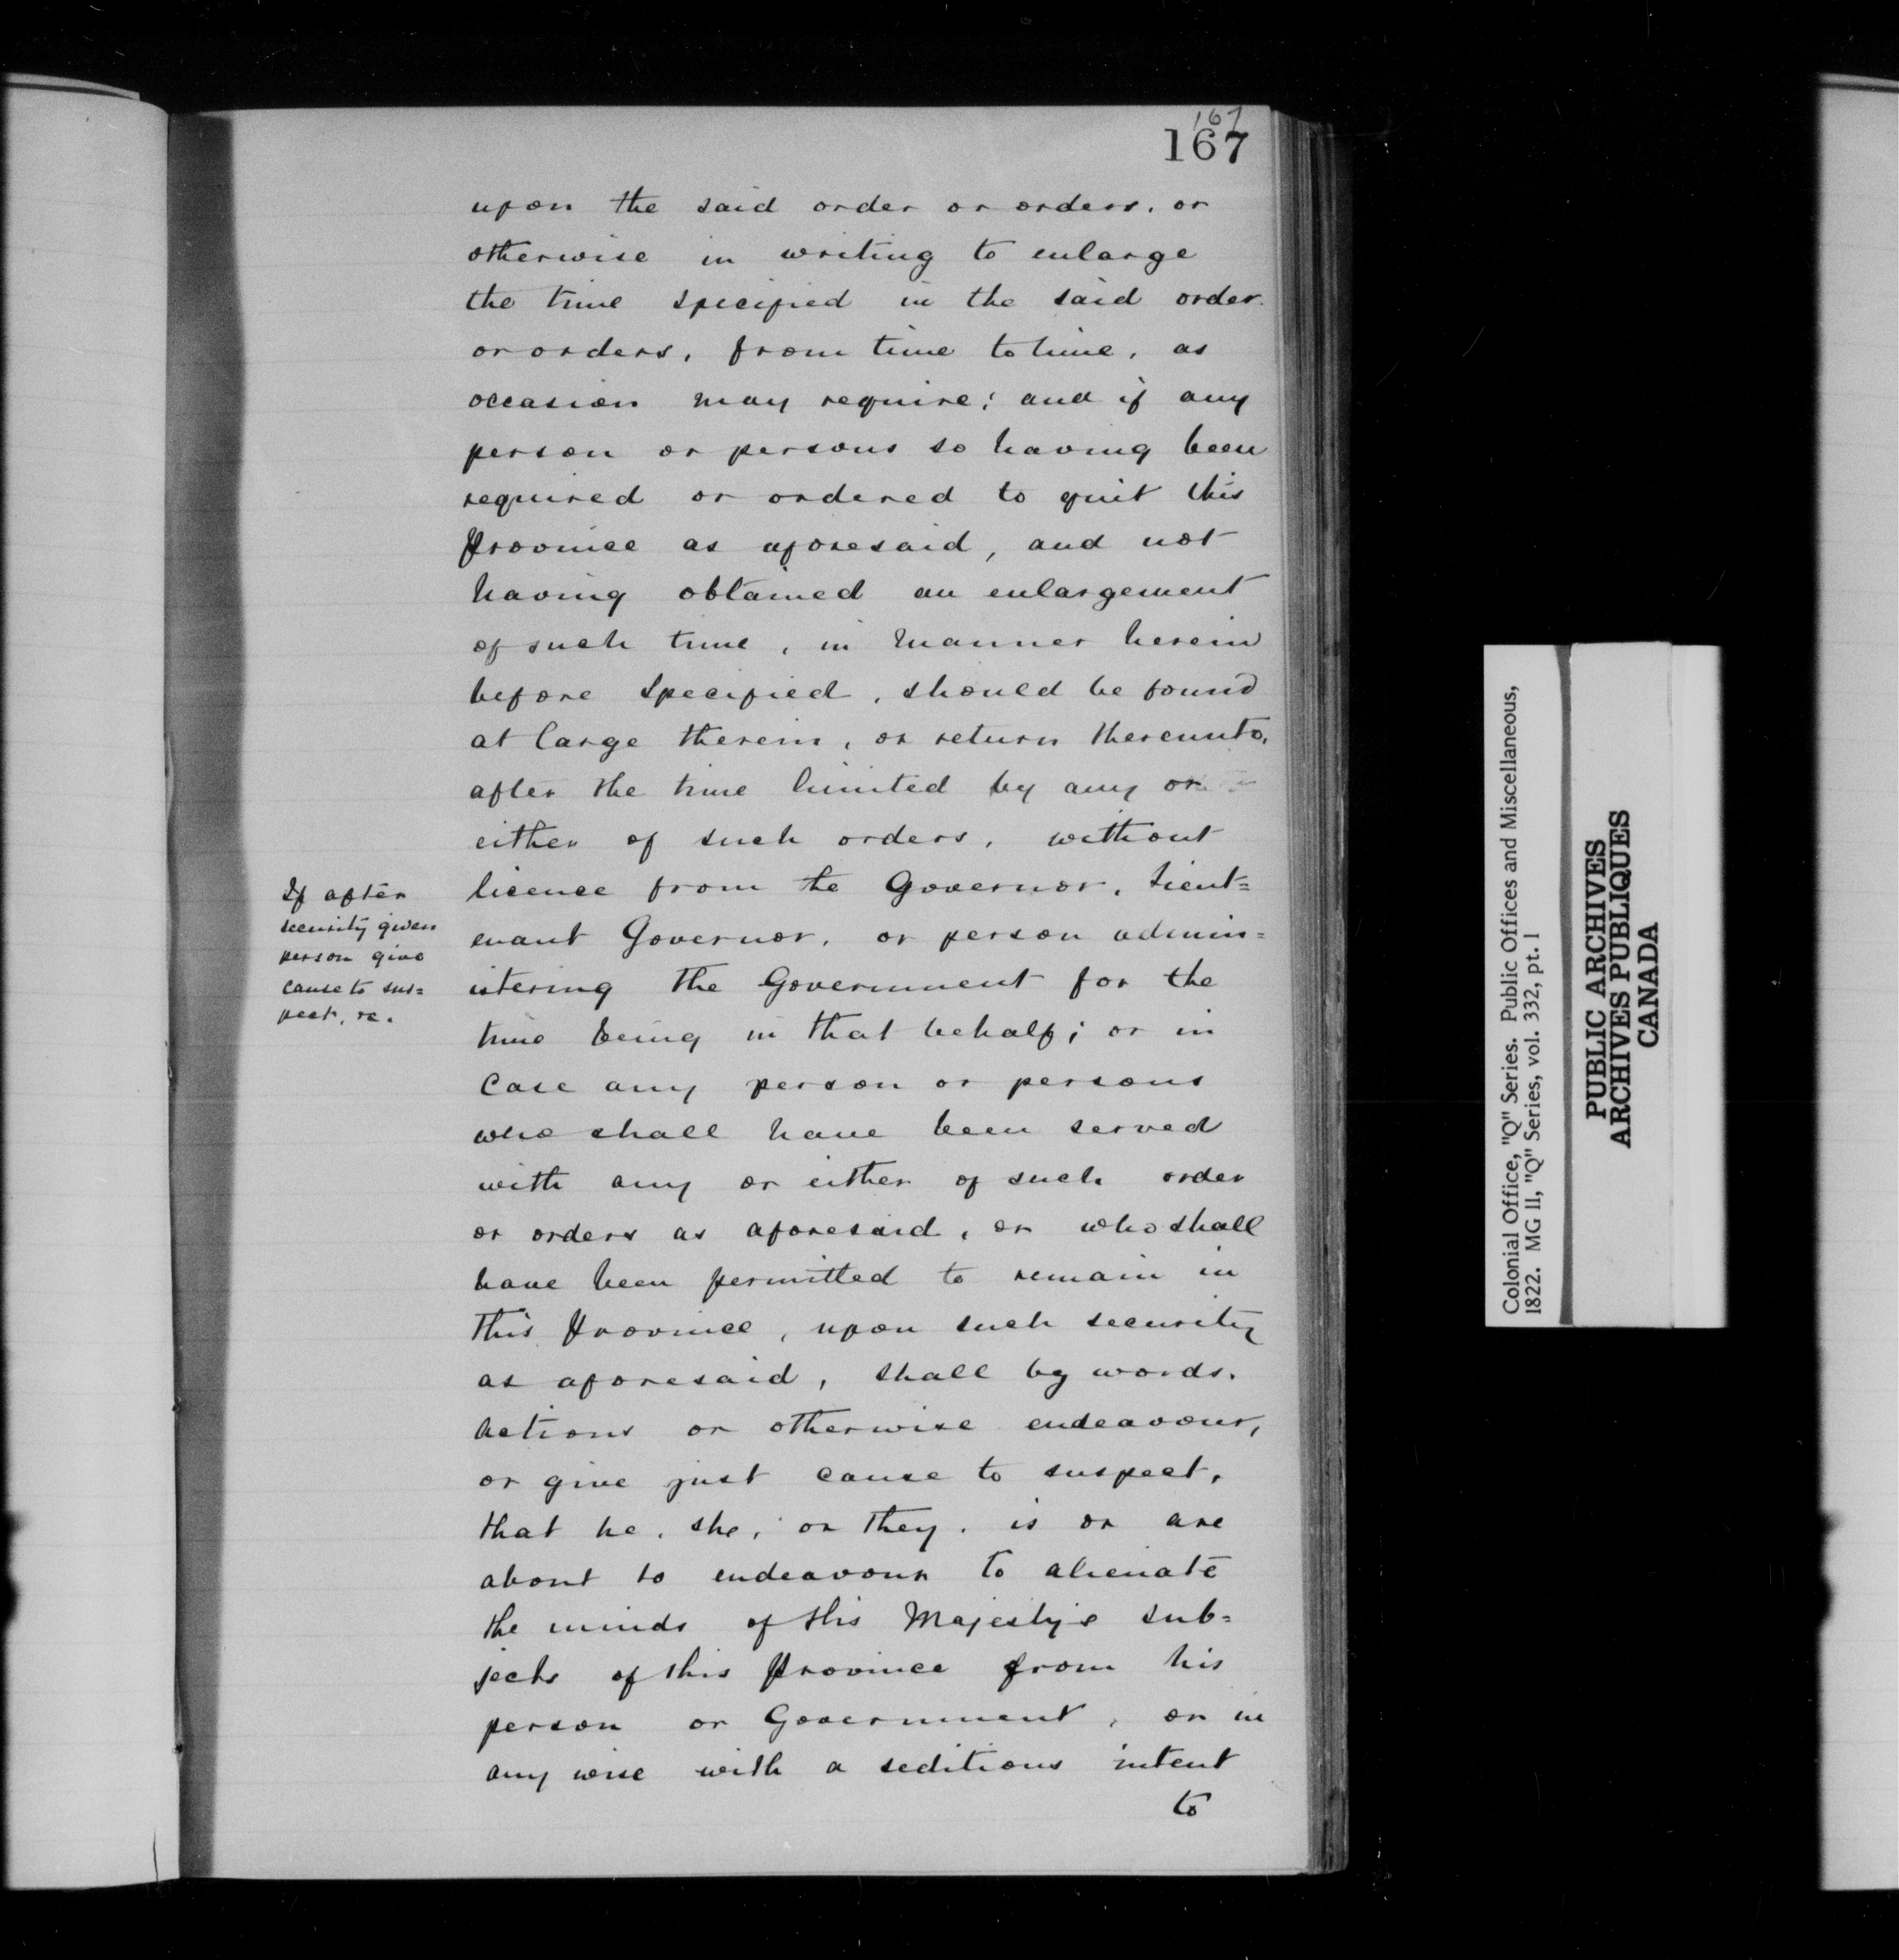 167
167
upon the said order or orders, or
otherwise in writing to enlarge
the time specified in the said order
or orders, from time to time, as
occasion may require; and if any
person or persons so having been
required or ordered to quit this
Province as aforesaid, and not
having obtained an enlargement
of such time, in manner herein
before specified, should be found
at large therein, or return thereunto,
after the time limited by any or
either of such orders, without
licence from the Governor, Lieut=
enant Governor, or person admin=
istering the Government for the
time being in that behalf; or in
case any person or persons
who shall have been served
with any or either of such order
or orders as aforesaid, or who shall
have been permitted to remain in
this Province, upon such security
as aforesaid, shall by words,
actions or otherwise endeavour,
or give just cause to suspect,
that he, she, or they, is or are
about to endeavour to alienate
the minds of His Majesty's sub=
jects of this Province from his
person or Government, or in
any wise with a seditious intent
to
If after
security given
person give
cause to sus=
pect, &c.
Colonial Office, "Q" Series. Public Offices and Miscellaneous,
1822. MG 11, "Q" Series, vol. 332, pt. 1
PUBLIC ARCHIVES
ARCHIVES PUBLIQUES
CANADA